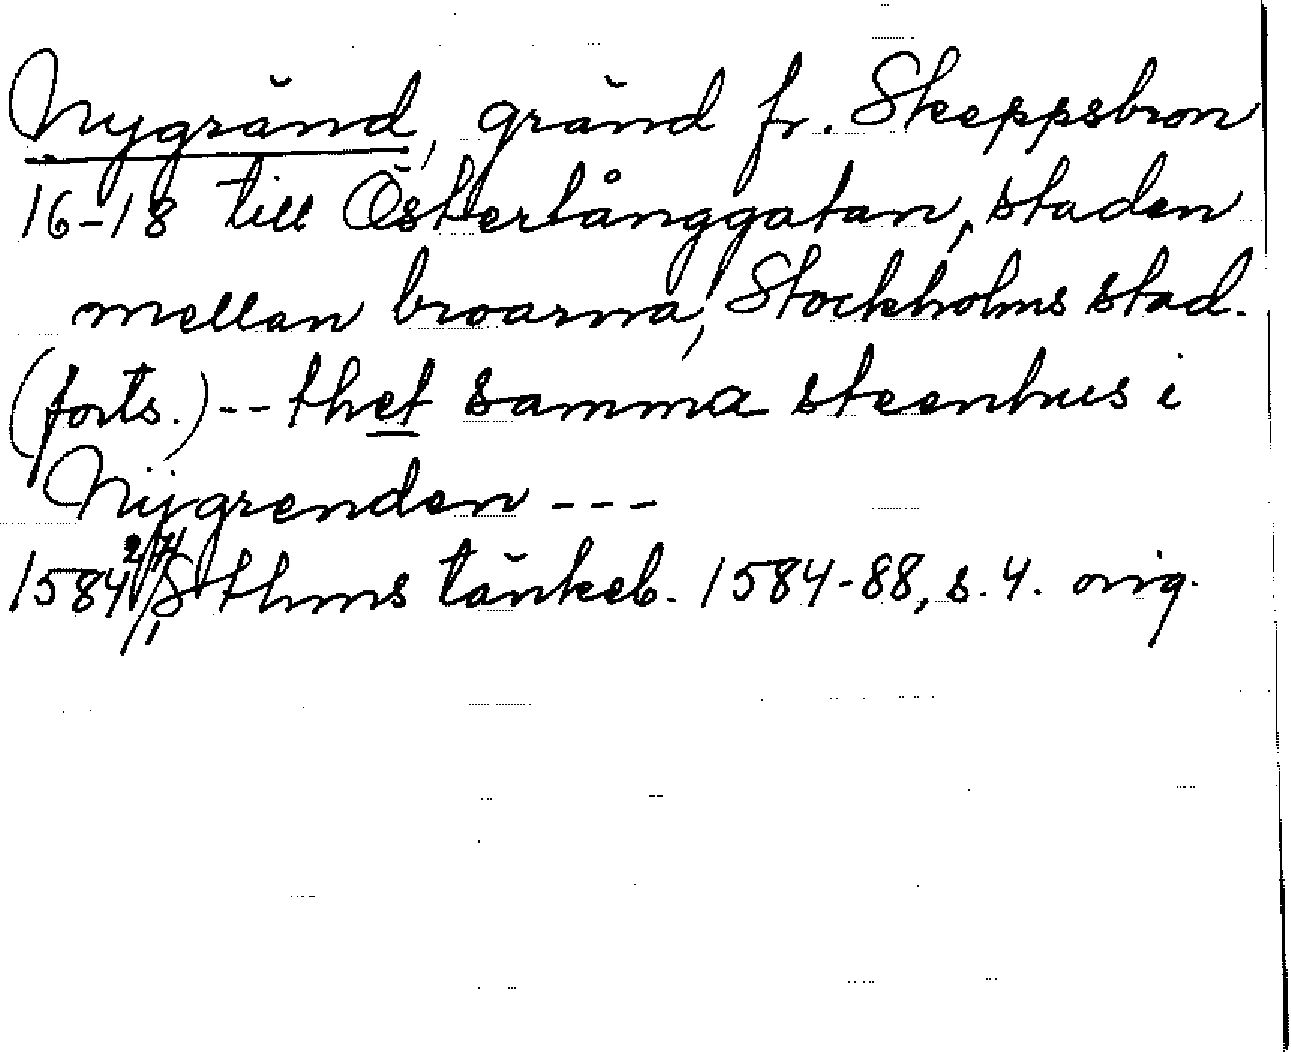 Nygränd, gränd fr. Skeppsbron
16-18 till Österlånggatan, staden
mellan broarna, Stockholms stad.
(forts.) -- thet samma steenhus i
Nÿgrenden ---
1584 27/1 Sthms tänkeb. 1584-88, s. 4. orig.